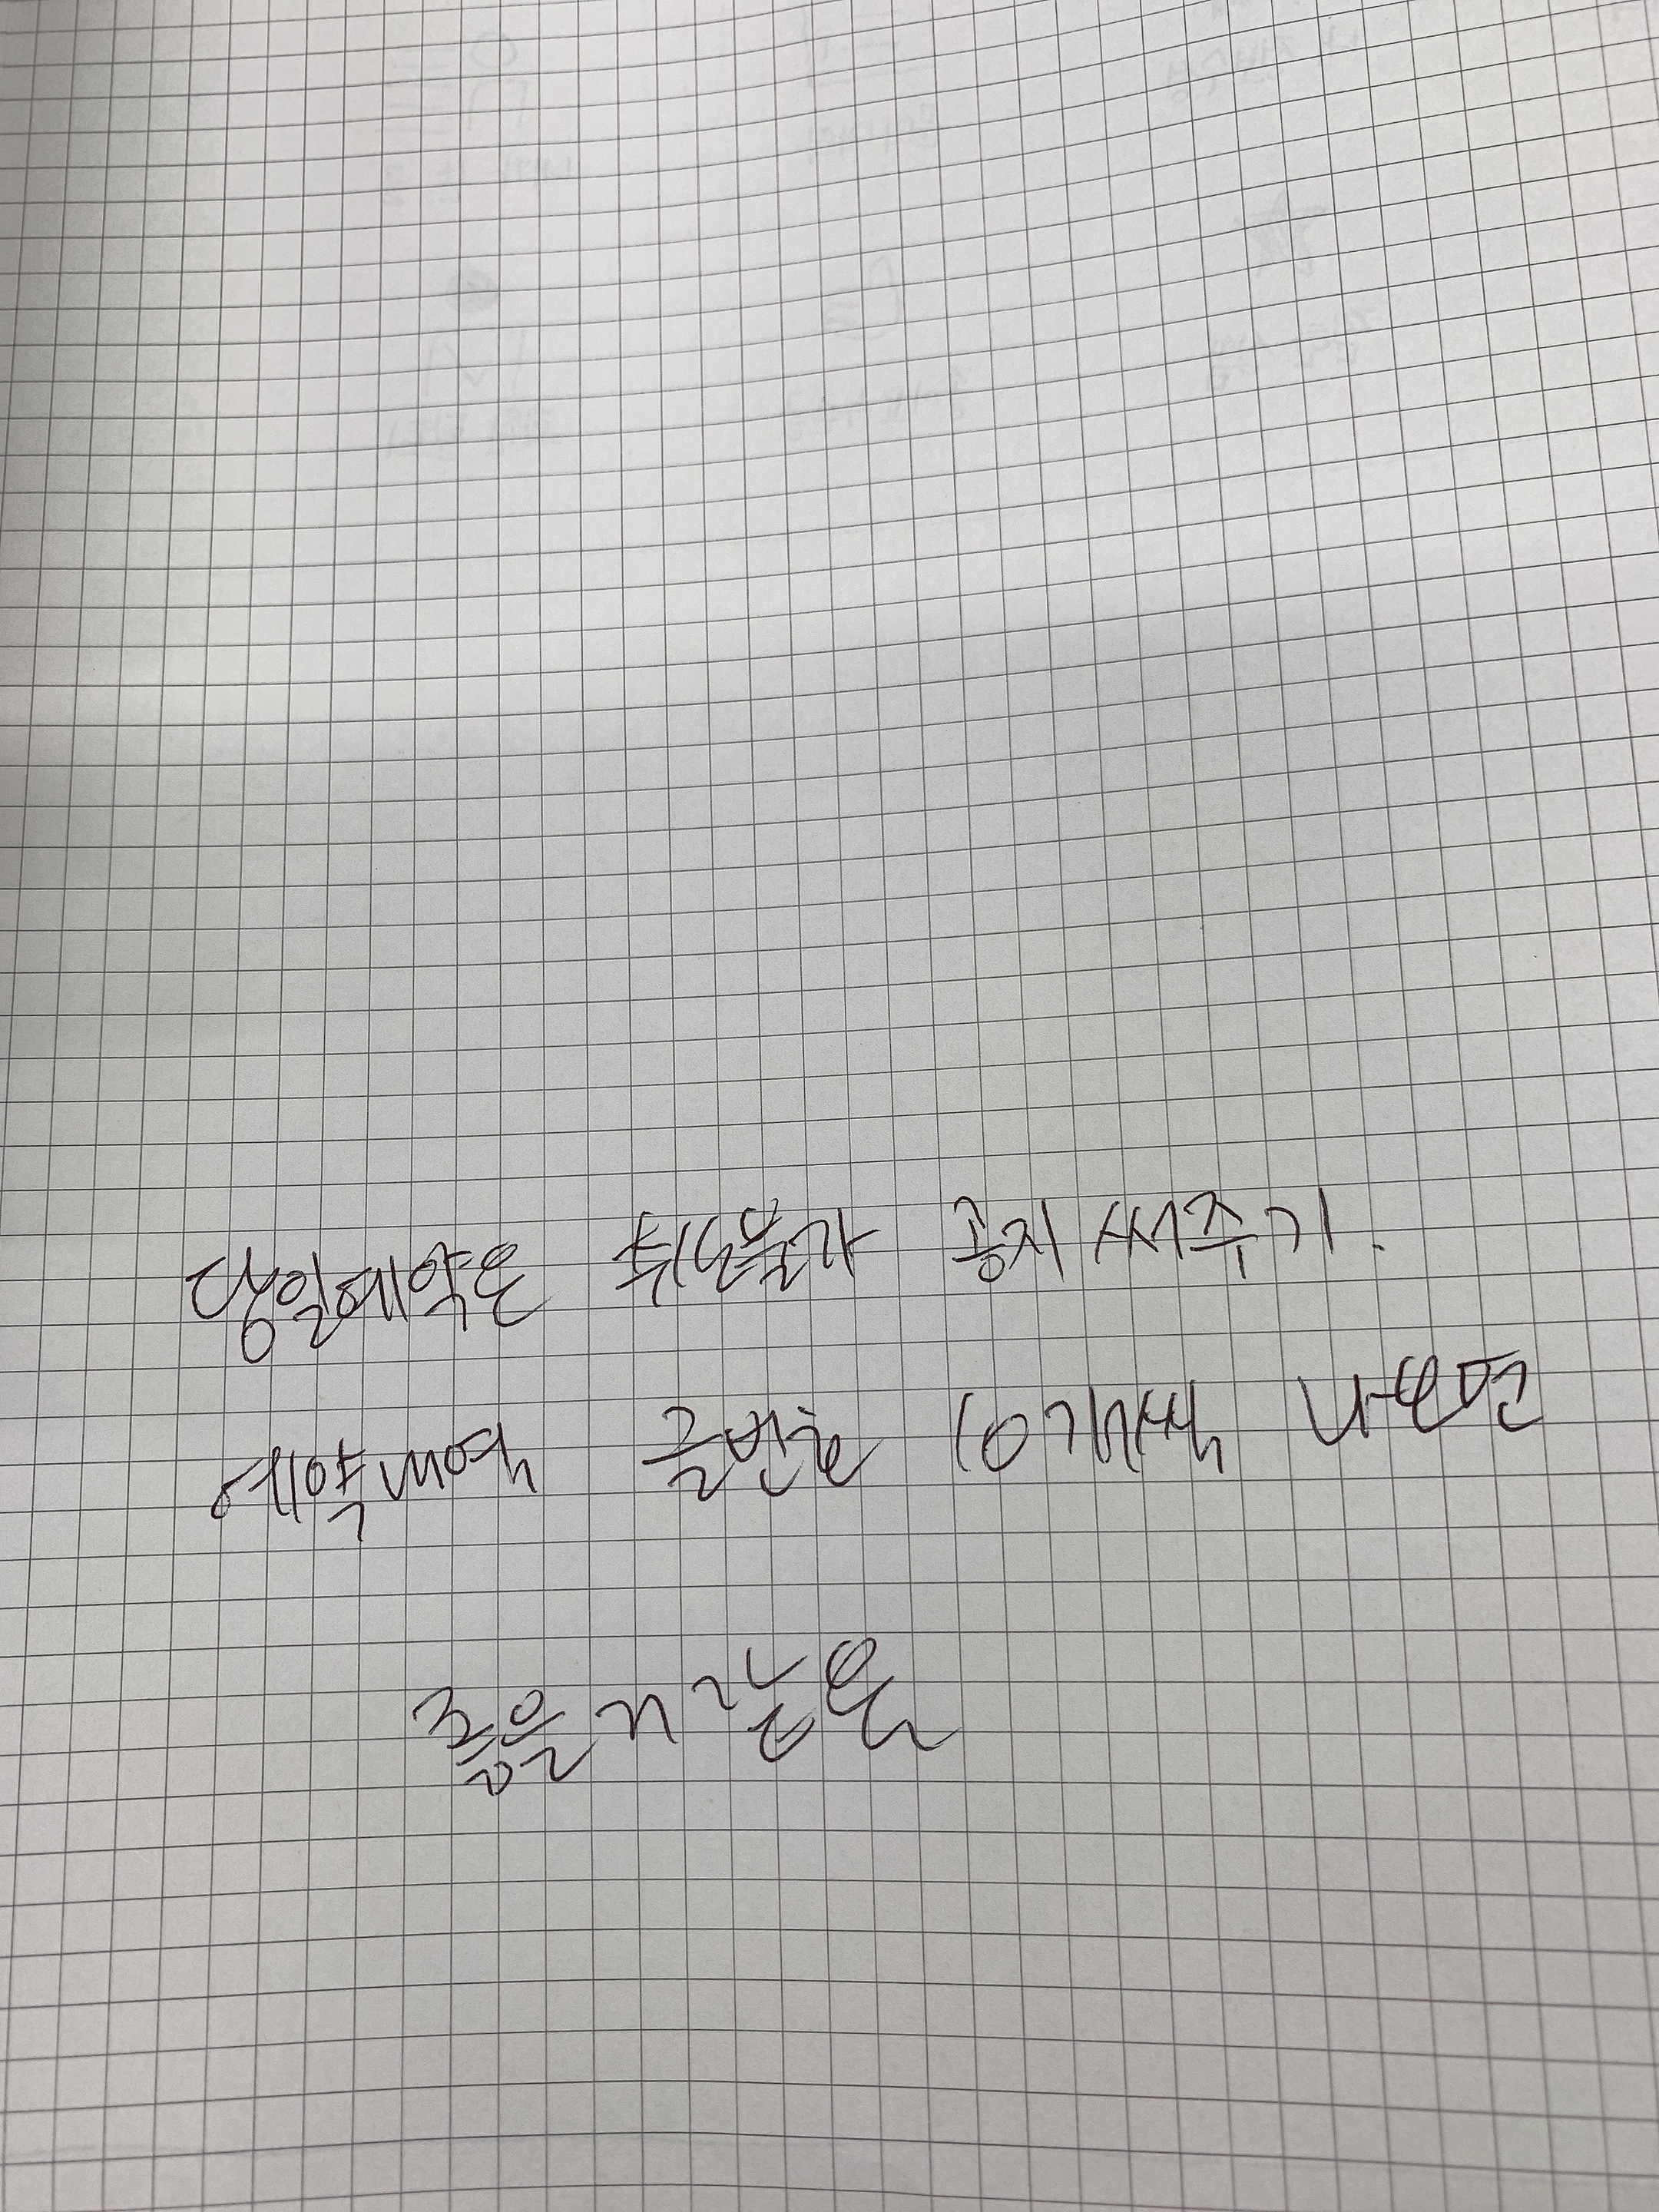 당일예약은 취소불가 공지 써주기.
예약내역 글번호 10개씩 나오면
좋을거같음